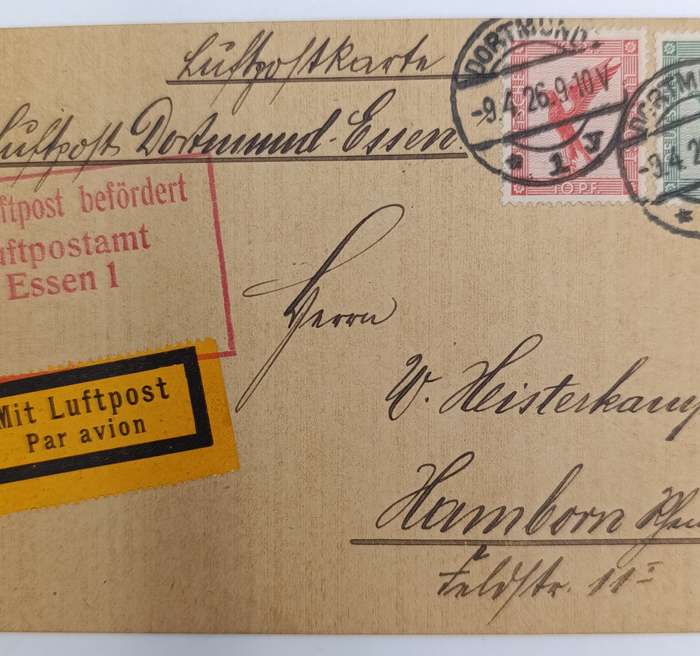 Luftpostkarte
Luftpost Dortmund-Essen.
DORTMUND
-9.4.26.9-10V
* 1 y
10 PF.
DORTM
-9.4.2
*
ftpost befördert
uftpostamt
Essen 1
Mit Luftpost
Par avion
Herrn
W. Heisterkamp
Hamborn Rhein
Feldstr. 11